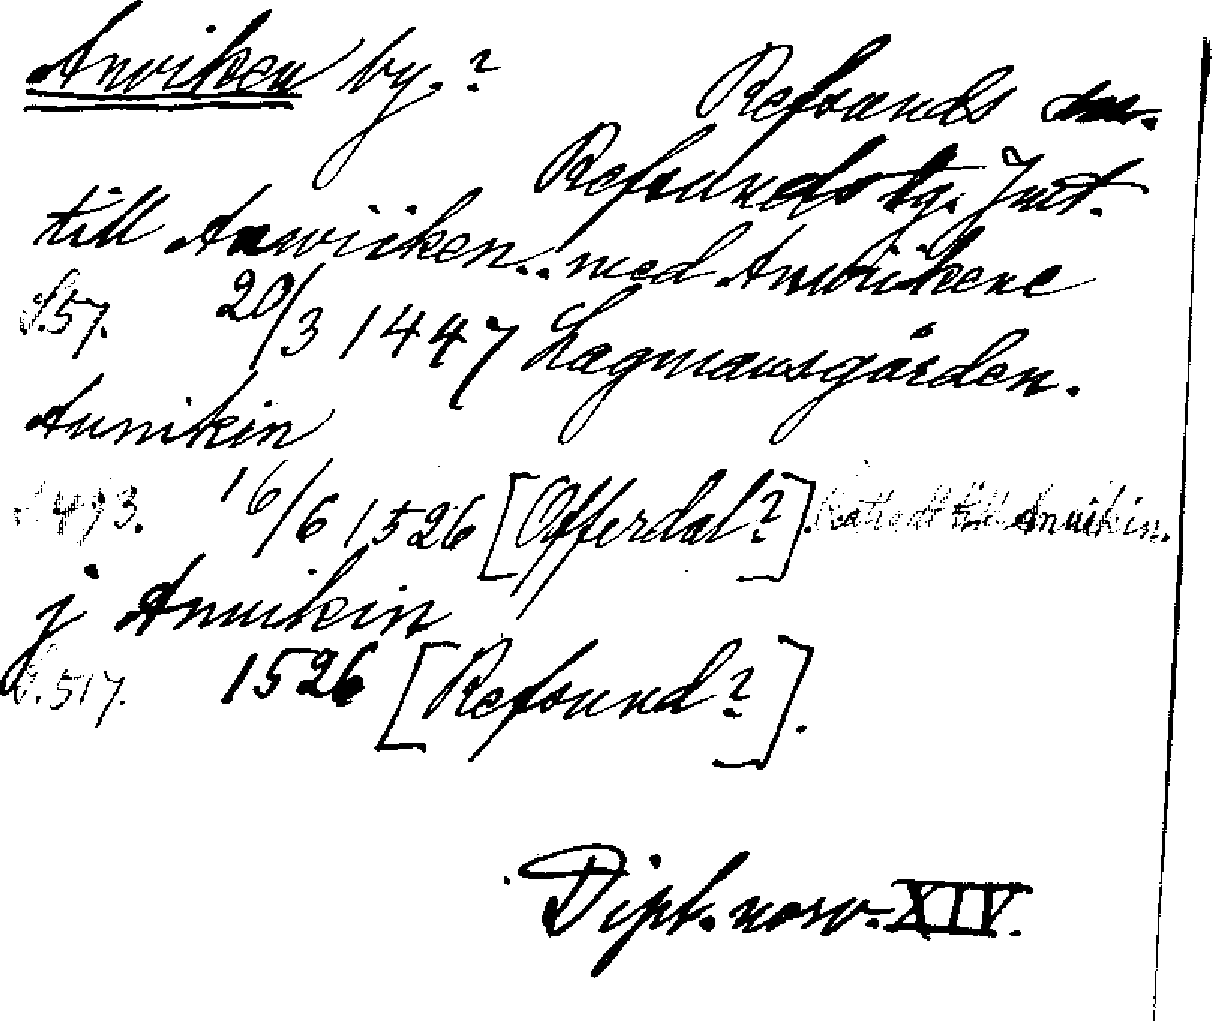 Anviken by.?
Refsunds sn.
Refsunds tg. Jmt.
till Anwiiken.. med Anwiikene
S.57. 20/3 1447 Lagmansgården.
Annikin
S.493. 16/6 1526 [Offerdal?]. till Anuikin.
j Anuikin
S.517. 1526 [Refsund?].
Dipl. norv. XIV.